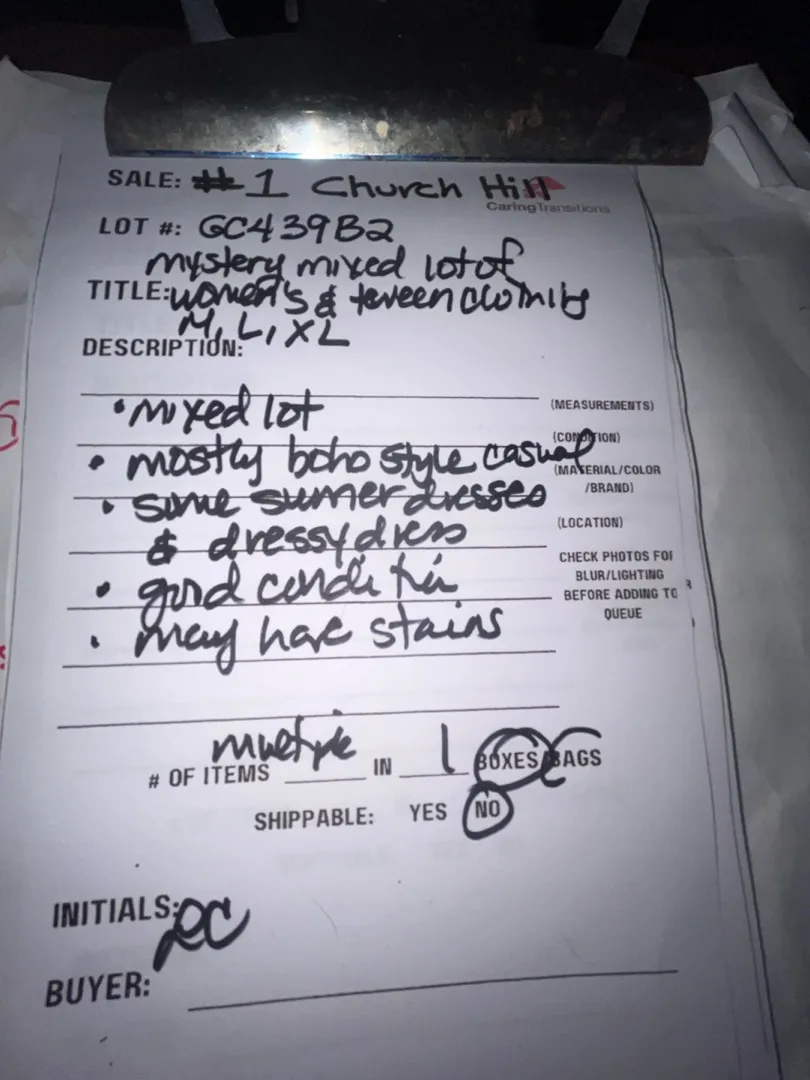 SALE: #1 Church Hill
Caring Transitions
LOT #: GC439B2
mystery mixed lot of
TITLE: women's & teveen clothing
M, L, XL
DESCRIPTION:
• mixed lot
(MEASUREMENTS)
(CONDITION)
• mostly boho style casual
(MATERIAL/COLOR
/BRAND)
• some summer dresses
(LOCATION)
& dressy dress
CHECK PHOTOS FOR
BLUR/LIGHTING
• good condition
BEFORE ADDING TO
QUEUE
• may have stains
# OF ITEMS multiple IN 1 BOXES/BAGS
SHIPPABLE: YES NO
INITIALS: RC
BUYER: